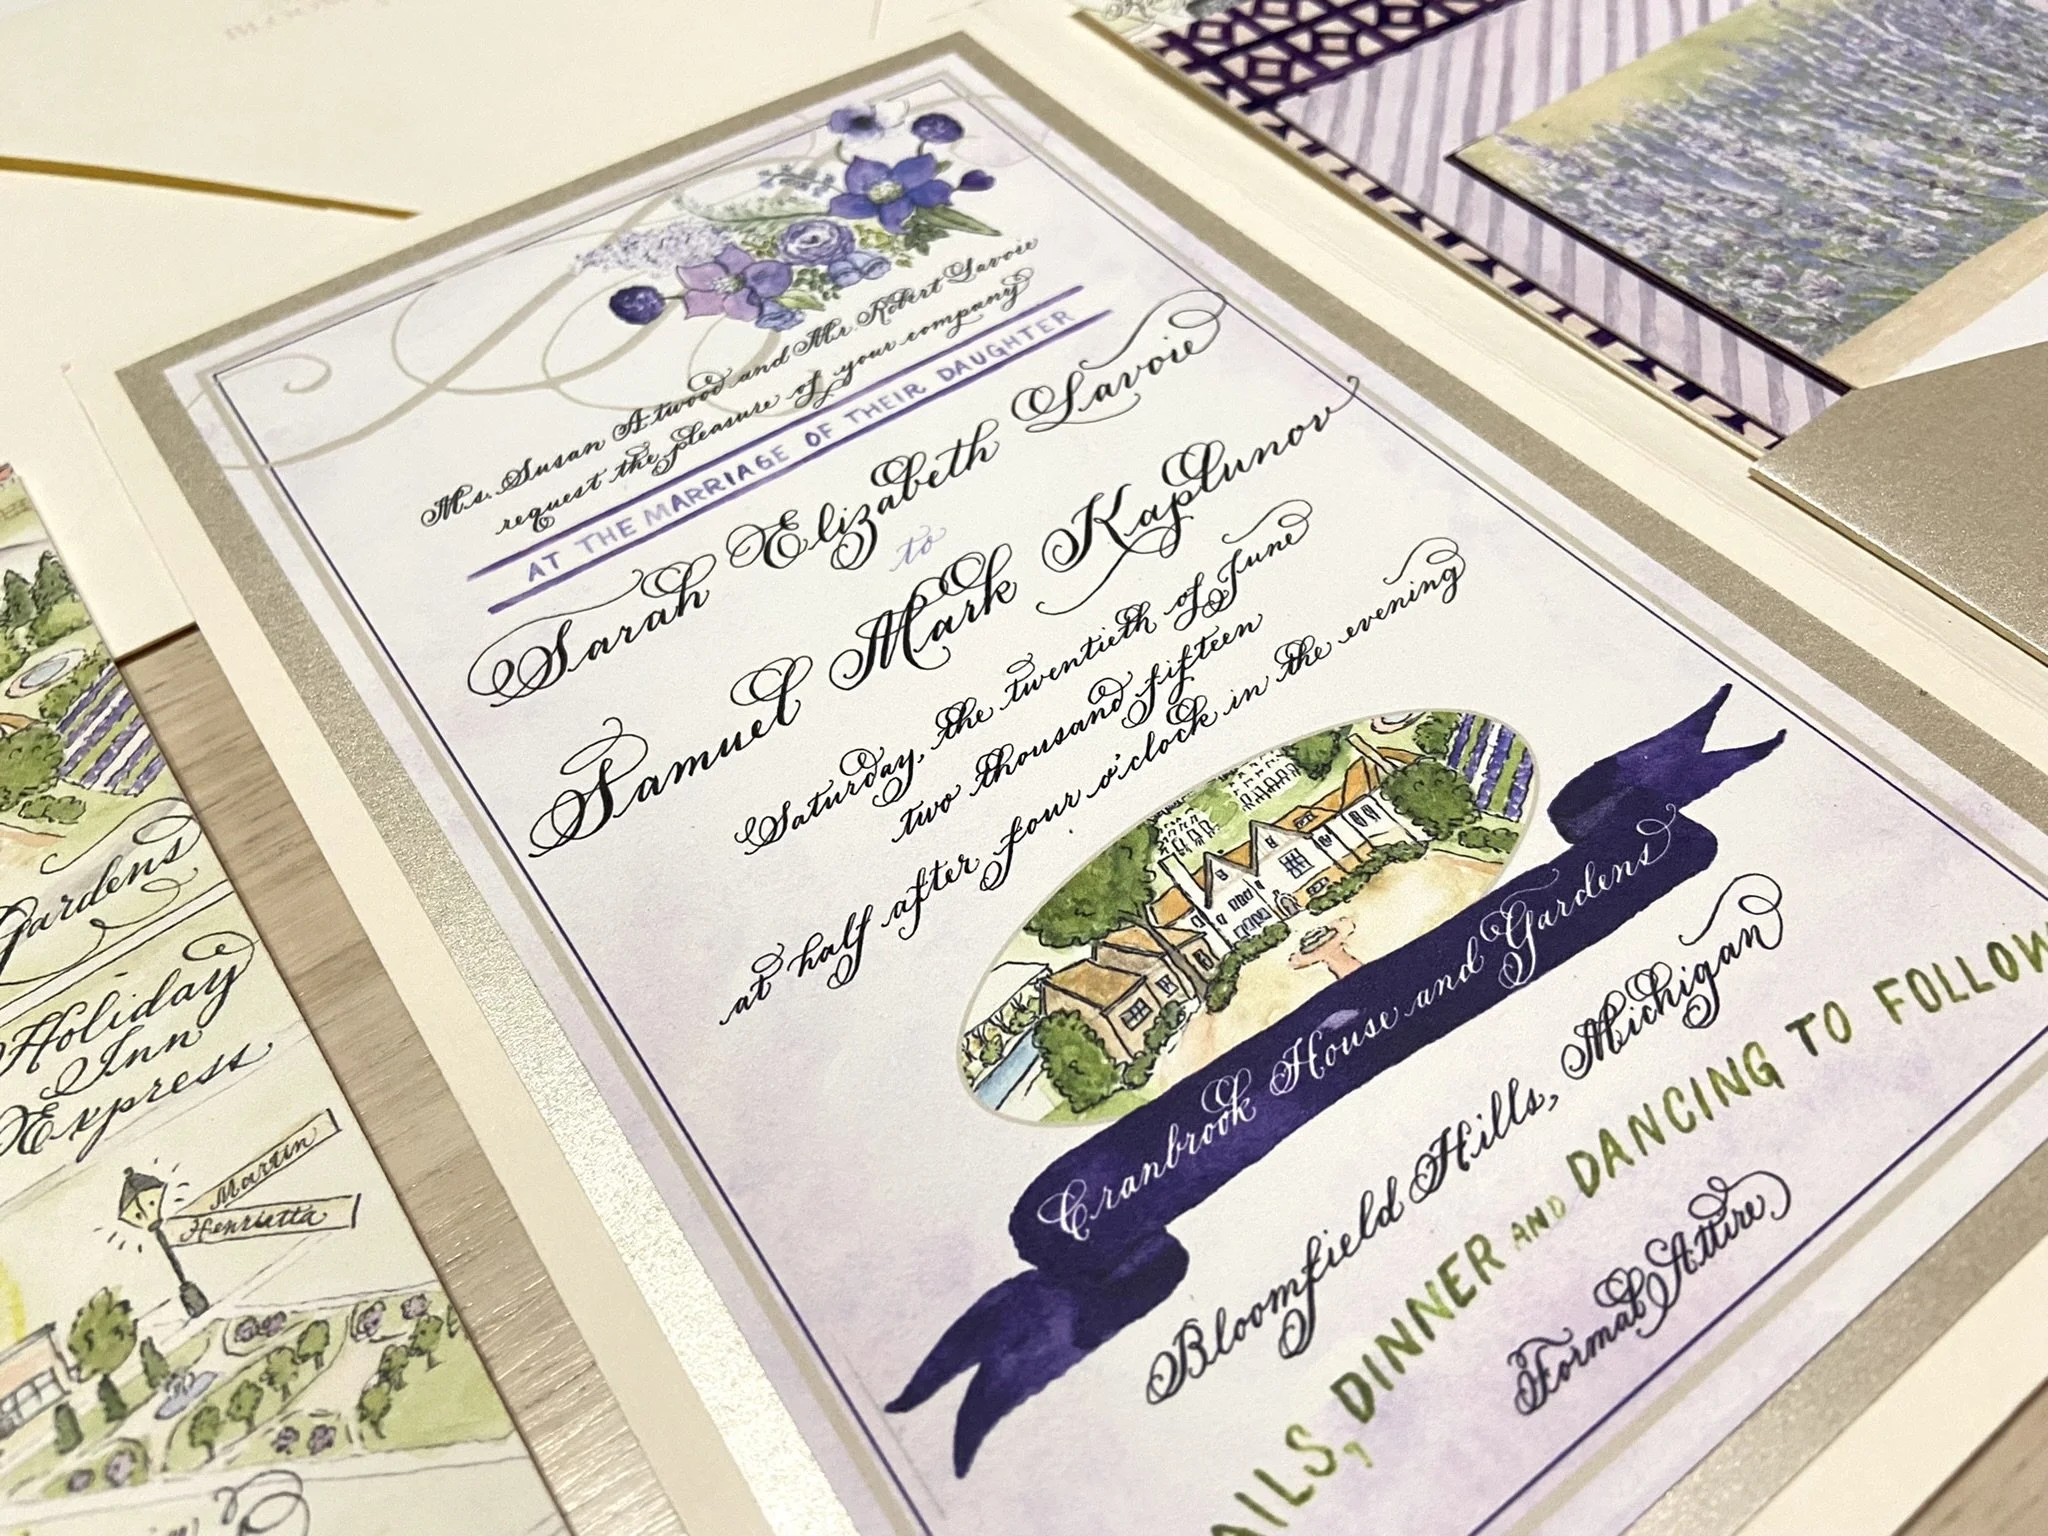 Ms. Susan Atwood and Mr. Robert Lavoie
request the pleasure of your company
AT THE MARRIAGE OF THEIR DAUGHTER
Sarah Elizabeth Lavoie
to
Samuel Mark Kaplunov
Saturday, the twentieth of June
two thousand fifteen
at half after four o'clock in the evening
Cranbrook House and Gardens
Bloomfield Hills, Michigan
AILS, DINNER AND DANCING TO FOLLOW
Formal Attire
Gardens
Holiday
Inn
Express
Martin
Henrietta